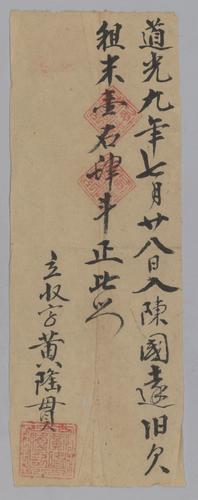 道光九年七月廿八日入陳國遠旧欠
租末壹石肆斗正比炤
立收字黄隆貫